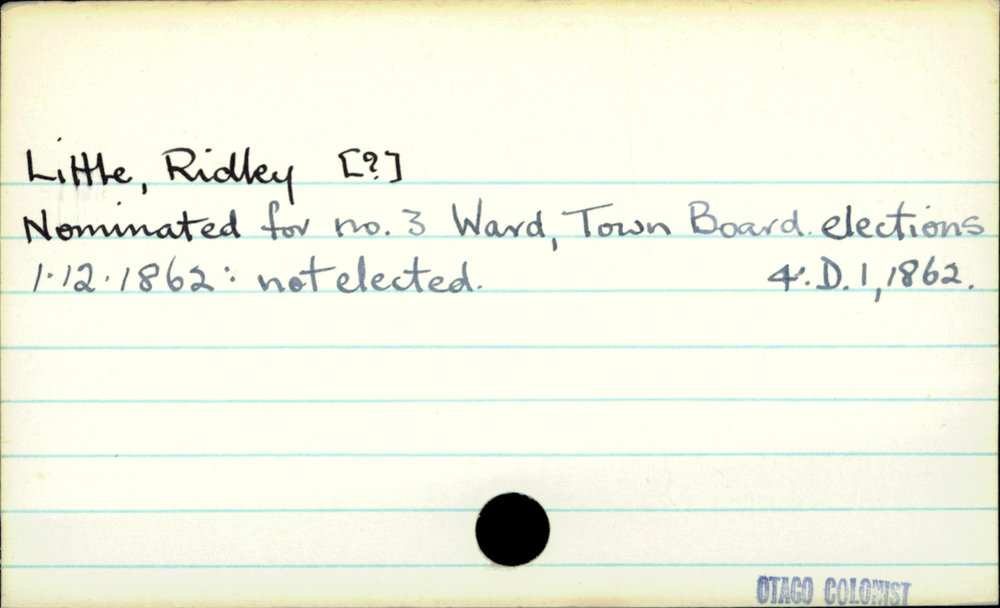 Little, Ridley [?]
Nominated for no. 3 Ward, Town Board elections
1.12.1862: not elected. 4'.D.1,1862.
OTAGO COLONIST